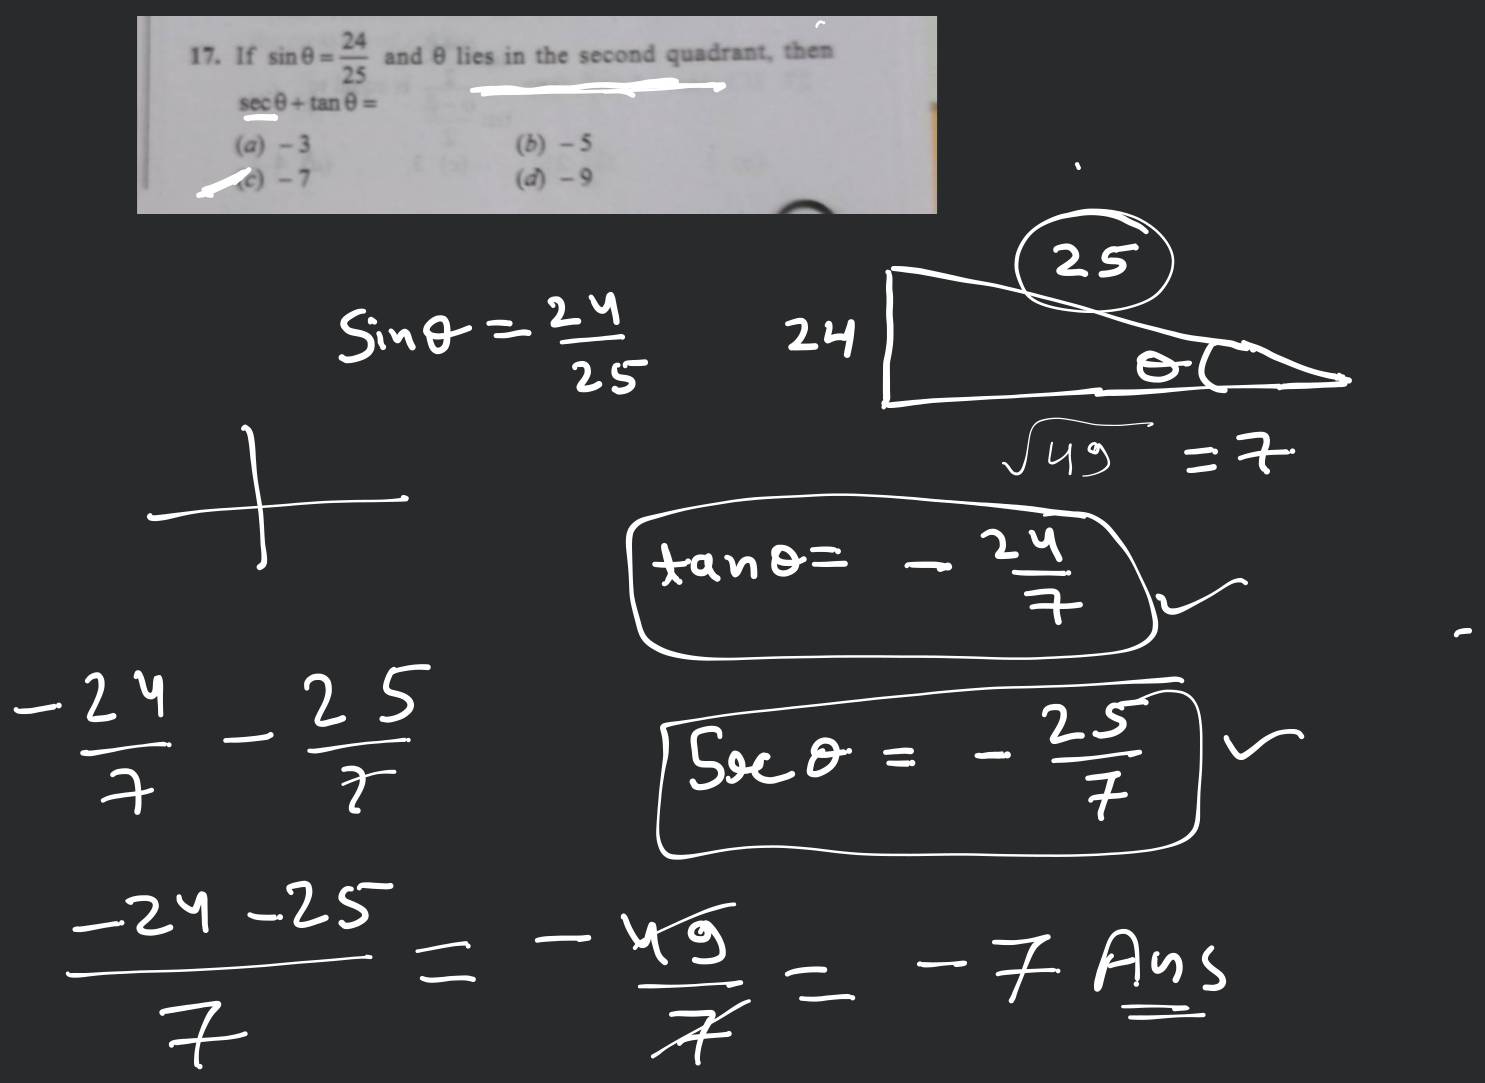 17. If sinθ = 24/25 and θ lies in the second quadrant, then
secθ + tanθ =
(a) – 3 (b) – 5
(c) – 7 (d) – 9
25
Sinθ = 24/25
24
θ
√49 = 7
tanθ = - 24/7
-24/7 - 25/7
Sec θ = - 25/7
-24 -25/7 = - 49/7 = -7 Ans